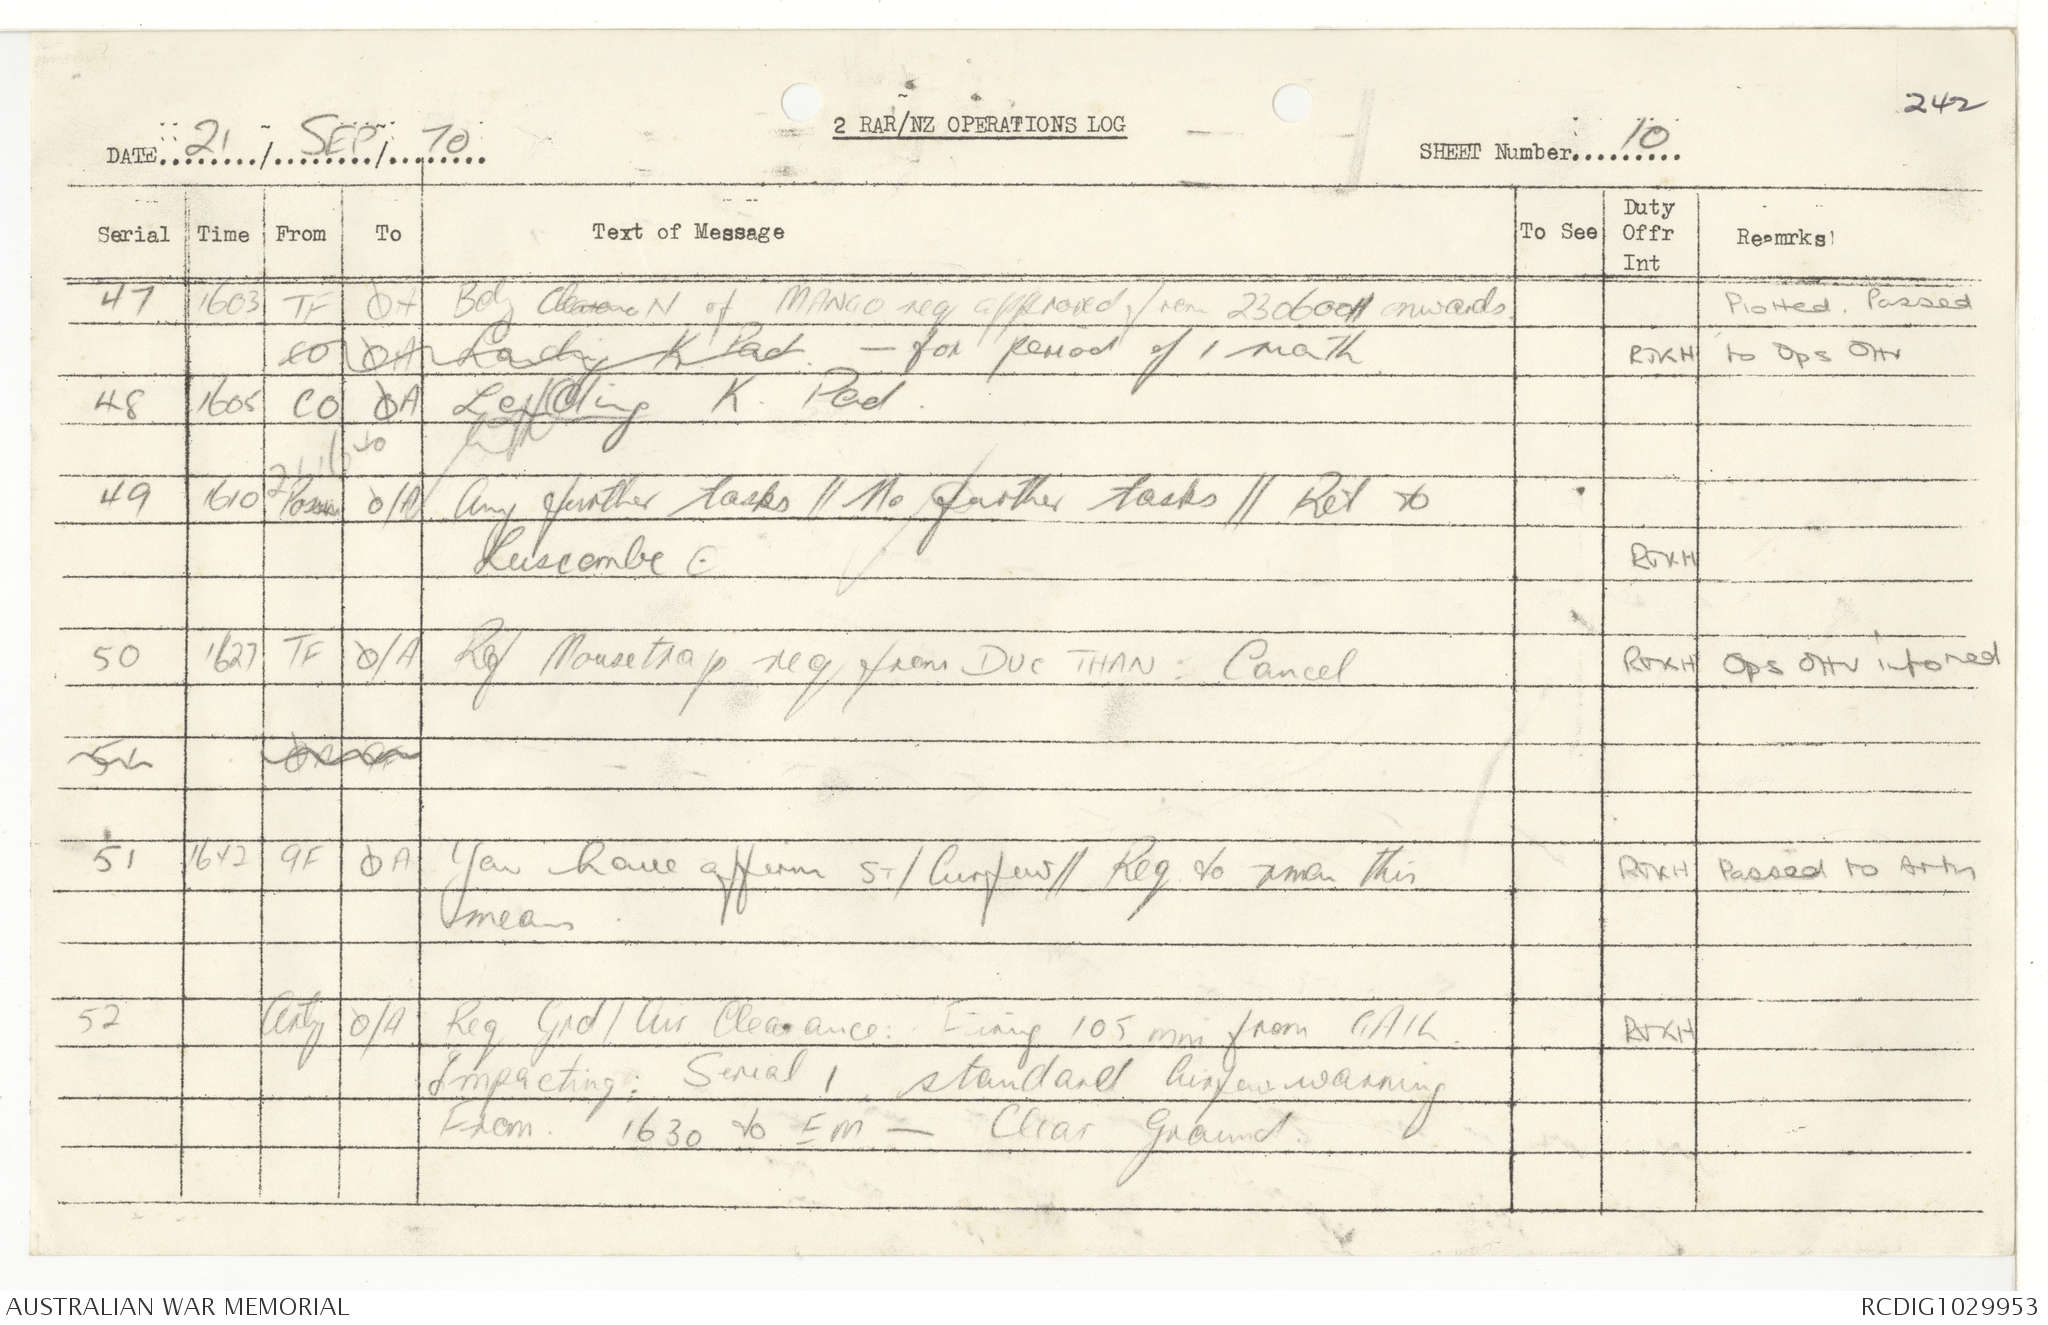 242
2 RAR/NZ OPERATIONS LOG
DATE 21 / SEP / 70
SHEET Number 10
Serial Time From To Text of Message To See Duty Offr Int Remrks
47 1603 TF OA Bdy of MANGO req approved from 230600H onwards Plotted. Passed
CO OA Landing K Pad. — for period of 1 month RJKH to Ops Offr
48 1605 CO OA K. Pad.
49 1610 Possum O/A Any further tasks // No further tasks // Ret to
Luscombe RJKH
50 1627 TF O/A Ref Mousetrap req from DUC THAN: Cancel RJKH Ops Offr informed
51
51 1642 9F OA You have affirm ST/ Curfew // Req to this RJKH Passed to Arty
means.
52 Arty O/A Req Grd/Air Clearance: Firing 105 mm from RJKH
Impacting: Serial 1 standard Curfew warning
From. 1630 to EM — Clear Ground.
AUSTRALIAN WAR MEMORIAL
RCDIG1029953